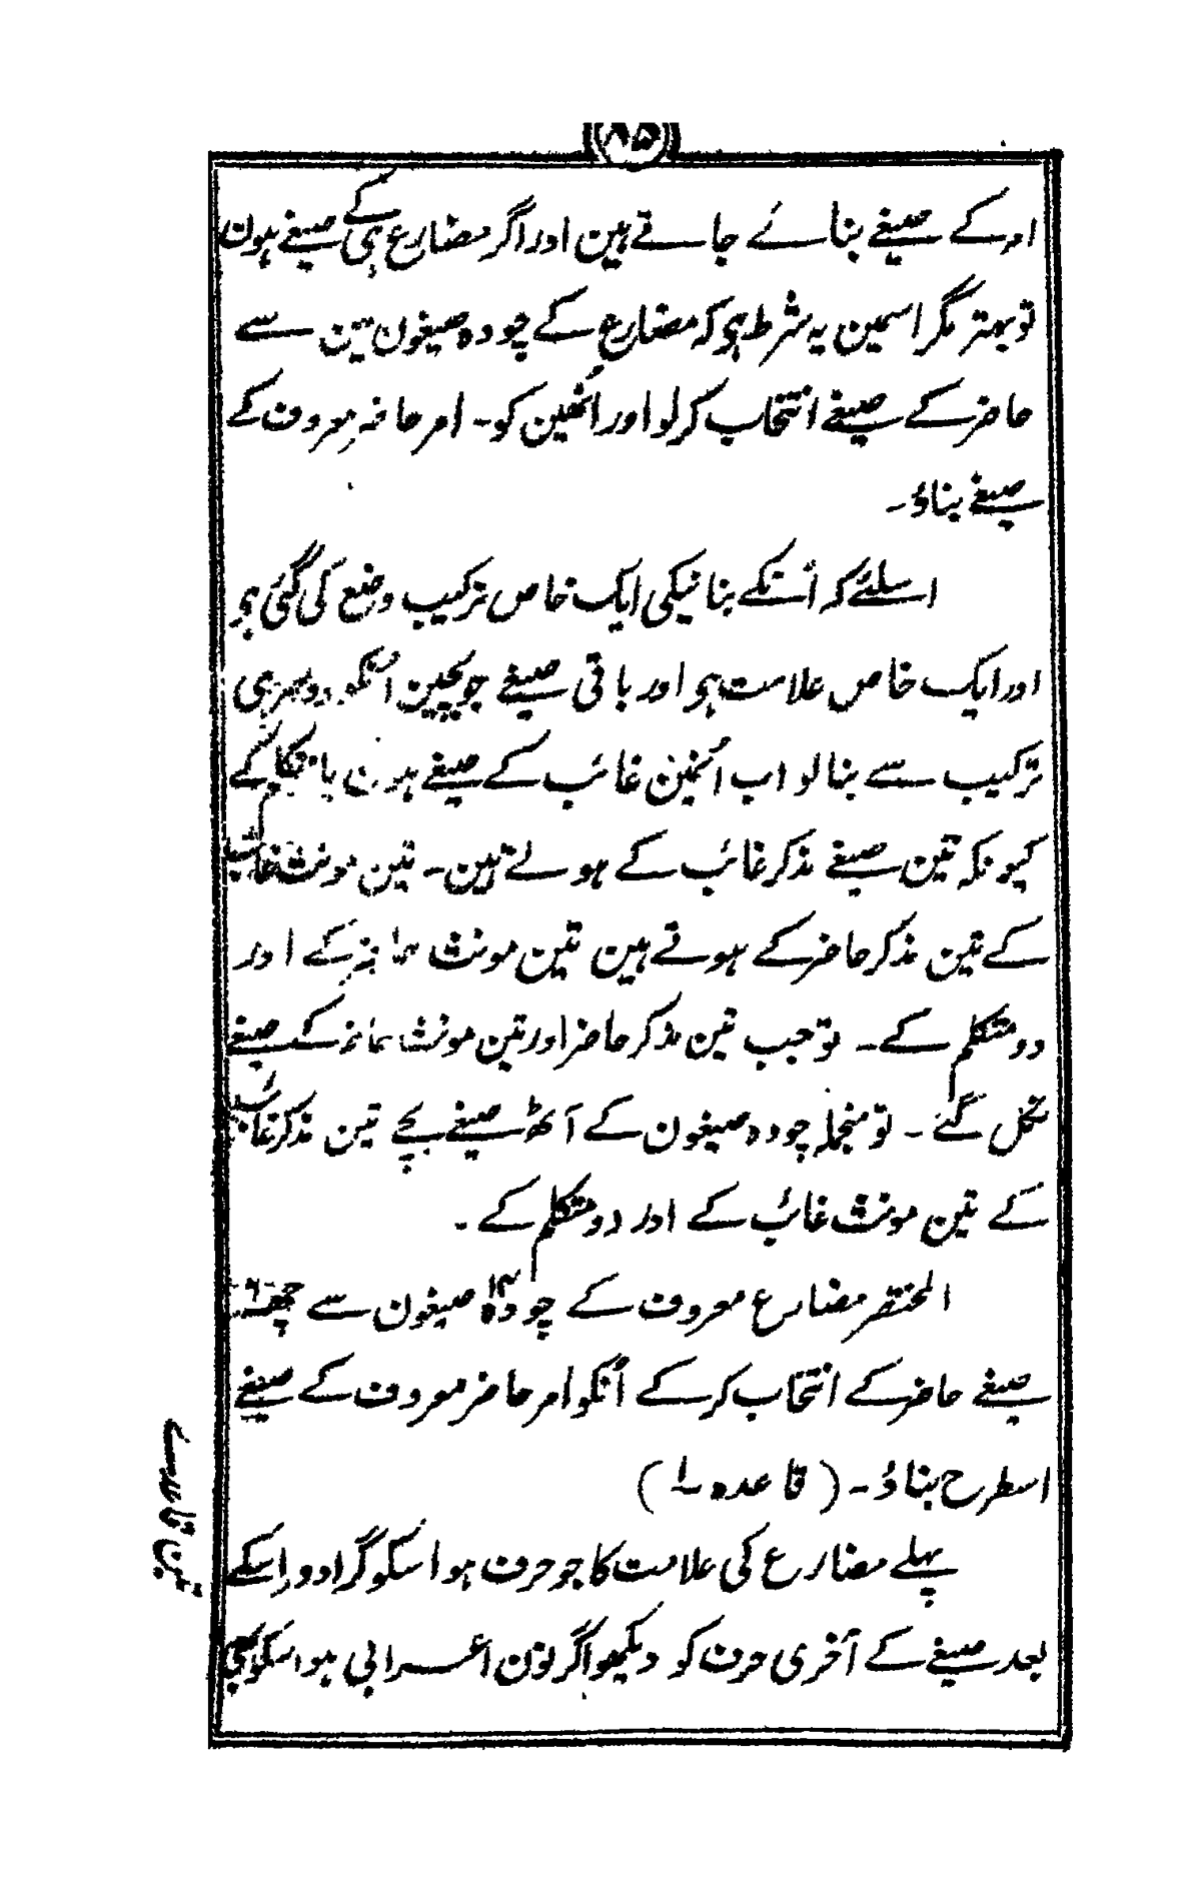 ۸۵
امر کے صیغے بنائے جاتے ہین اور اگر مضارع ہی کے صیغے ہون
تو بہتر مگر اسمین یہ شرط ہی کہ مضارع کے چودہ صیغون مین سے
حاضر کے صیغے انتخاب کرلو اور انھین کو۔ امر حاضر معروف کے
صیغے بناؤ۔
اسلئے کہ اُنکے بنانیکی ایک خاص ترکیب وضع کی گئی ہی
اور ایک خاص علامت ہی اور باقی صیغے جو بچین اُنکو دوسری
ترکیب سے بنالو اب اُنھین غائب کے صیغے ہون یا متکلم کے
کیونکہ تین صیغے مذکر غائب کے ہوتے ہین۔ تین مونث غائب
کے تین مذکر حاضر کے ہوتے ہین تین مونث حاضر کے اور
دو متکلم کے۔ تو جب تین مذکر حاضر اور تین مونث حاضر کے صیغے
نکل گئے۔ تو منجملہ چودہ صیغون کے آٹھ صیغے بچے تین مذکر غائب
کے تین مونث غائب کے اور دو متکلم کے۔
المختصر مضارع معروف کے چودہ ۱۴ صیغون سے چھ ۶
صیغے حاضر کے انتخاب کرکے اُنکو امر حاضر معروف کے صیغے
اسطرح بناؤ۔ (قاعدہ ۱)
پہلے مضارع کی علامت کا جو حرف ہو اسکو گرادو اِسکے
بعد صیغے کے آخری حرف کو دیکھو اگر نون اعرابی ہو اسکو بھی